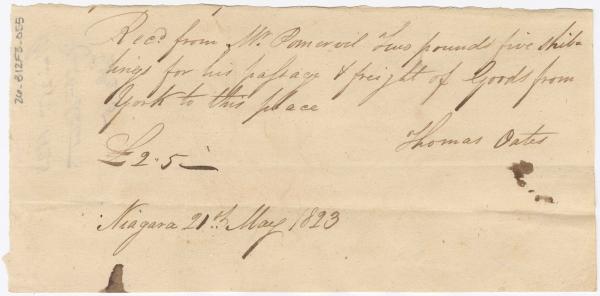 Rec.d from Mr. Pomeroil Two pounds five shil-
lings for his passage & freight of Goods from
York to this place
Thomas Oates
£2.5—
Niagara 21st May 1823